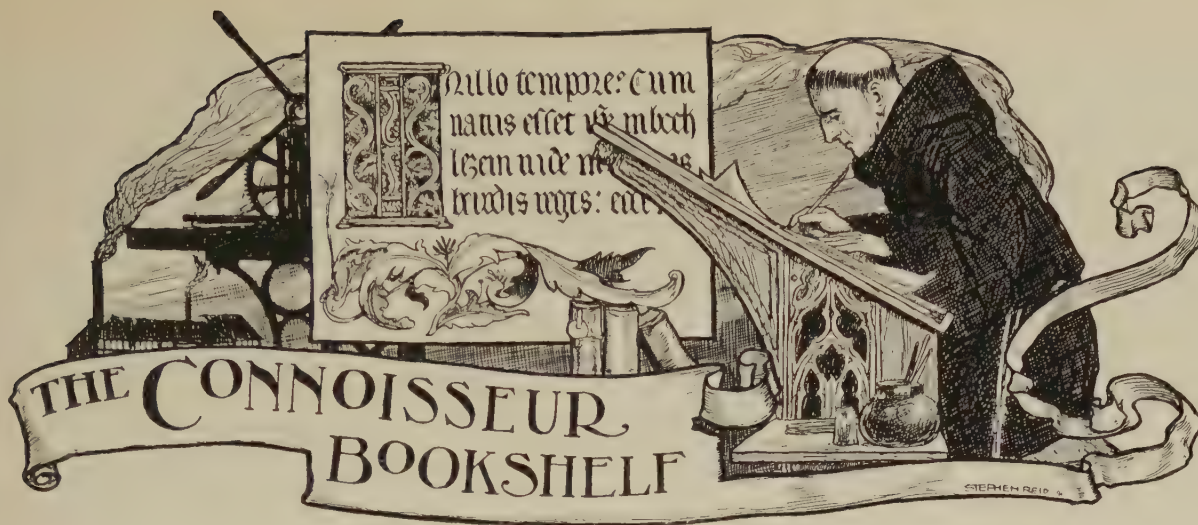 INillo tempore: Cum
natus eſſet in beth
lezem iude
herodis regis: ecce
THE CONNOISSEUR
BOOKSHELF
STEPHEN REID